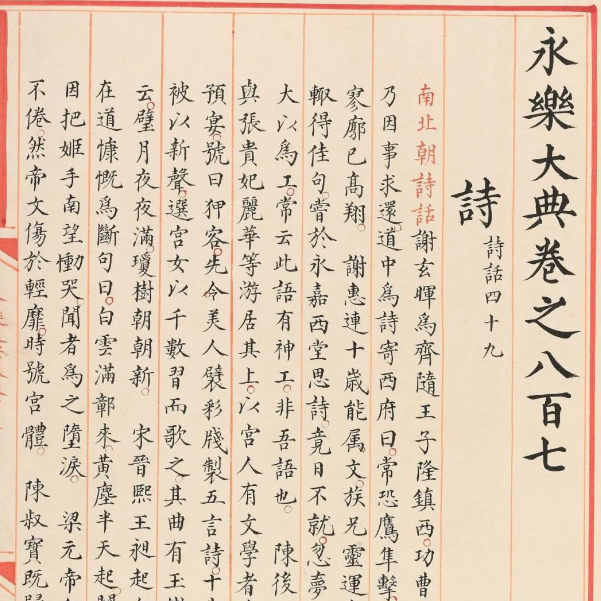 永樂大典卷之八百七
詩 詩話四十九
南北朝詩話謝玄暉為齊隨王子隆鎮西功曹
乃因事求還。道中為詩寄西府曰。常恐鷹隼擊
寥廓已高翔。 謝惠連十歲能属文。族兄靈運
輙得佳句。嘗於永嘉西堂思詩。竟日不就。忽夢
大以為工。常云此語有神工。非吾語也。 陳後
與張貴妃麗華等游居其上。以宮人有文學者
預宴。號曰狎客。先令美人襞彩牋製五言詩。十
被以新聲。選宮女以千數習而歌之。其曲有玉
云。璧月夜夜滿。瓊樹朝朝新。 宋晉熙王昶起
在道慷慨為斷句曰。白雲滿鄣來。黃塵半天起。
因把姬手南望慟哭。聞者為之墮淚。 梁元帝
不倦。然帝文傷於輕靡。時號宮體。 陳叔寳既